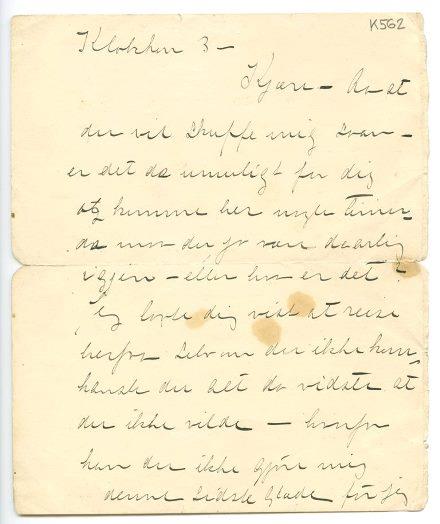 K562
Klokken 3 –
Kjære – Aa at
du vil skuffe mig saa –
er det da umuligt for dig
at komme her nogle timer –
da maa du jo være daarlig
igjen – eller hva er det?
Jeg lovte dig vist at reise
herfra selv om du ikke kom,
kanske du alt da vidste at
du ikke vilde – hvorfor
kan du ikke gjøre mig
denne sidste glæde før jeg